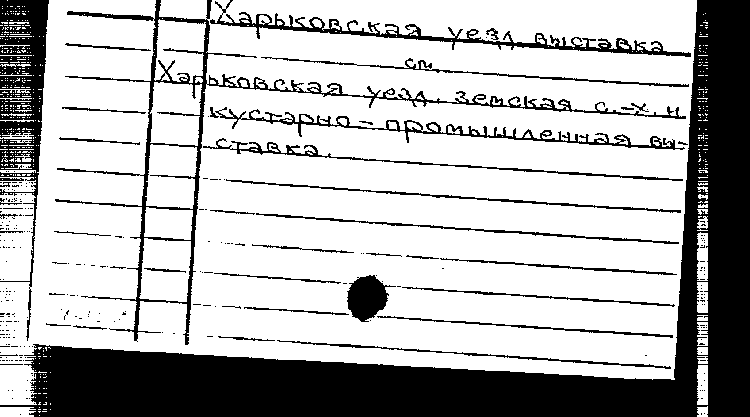 Харьковская уезд. выставка
см.
Харьковская уезд. земская с.-х. и
кустарно-промышленная вы-
ставка.